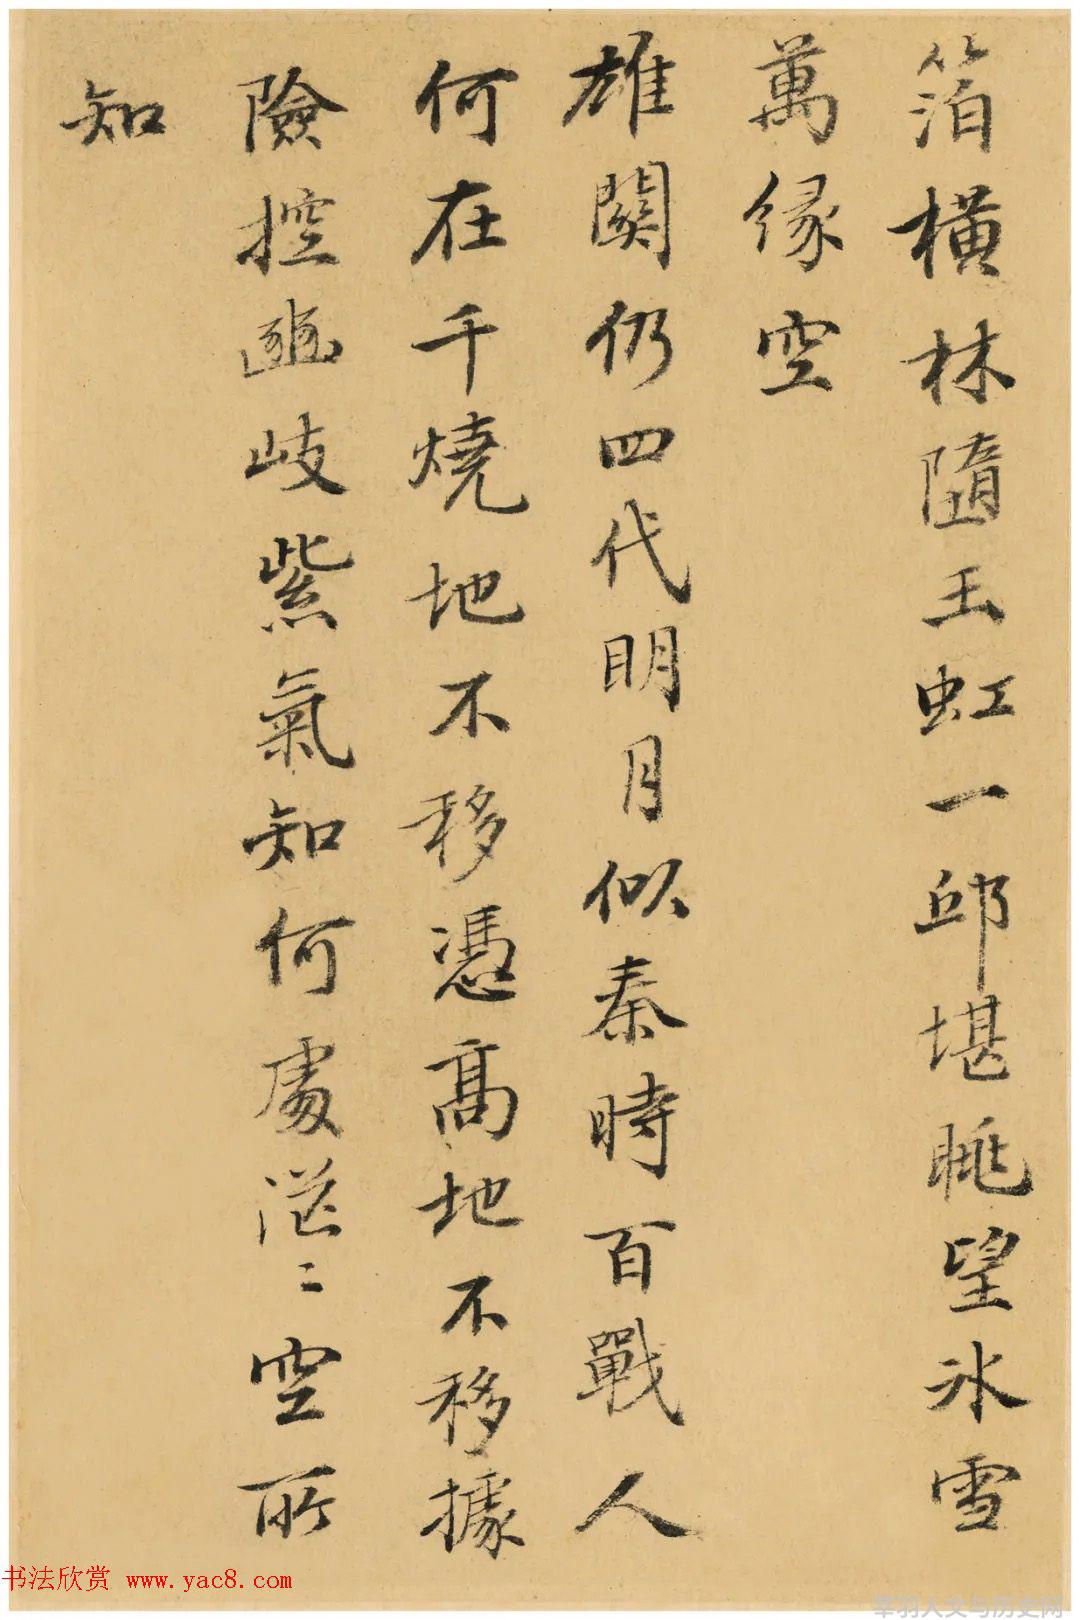 箔橫林隨玉虹一邱堪眺望冰雪
萬緣空
雄關仍四代明月似秦時百戰人
何在千燒地不移憑高地不移據
險控豳岐紫氣知何處茫〻空所
知
书法欣赏 www.yac8.com